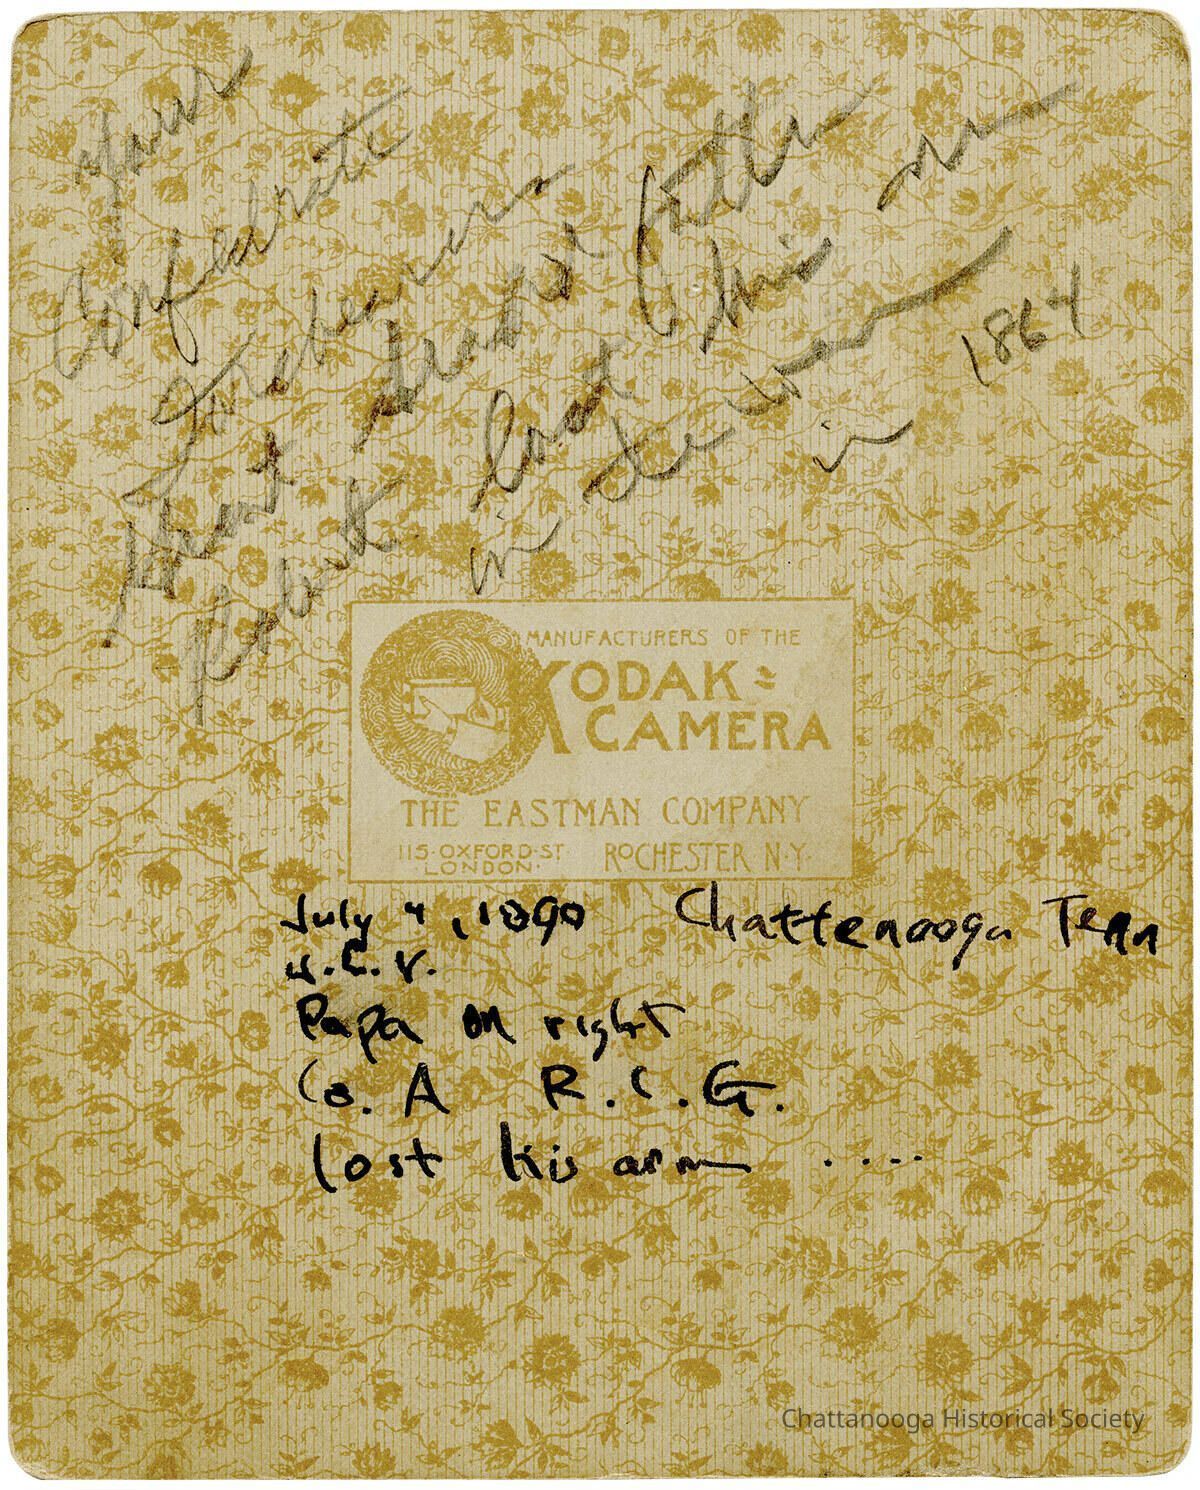 Your
Confedrate
Forebearers
father
Robert lost his arm
in the war in 1864
MANUFACTURERS OF THE
KODAK
CAMERA
THE EASTMAN COMPANY
115·OXFORD·ST· LONDON· ROCHESTER N·Y·
July 4, 1890 Chattenooga Tenn
U.C.V.
Papa on right
Co. A R.C.G.
lost his arm ....
Chattanooga Historical Society